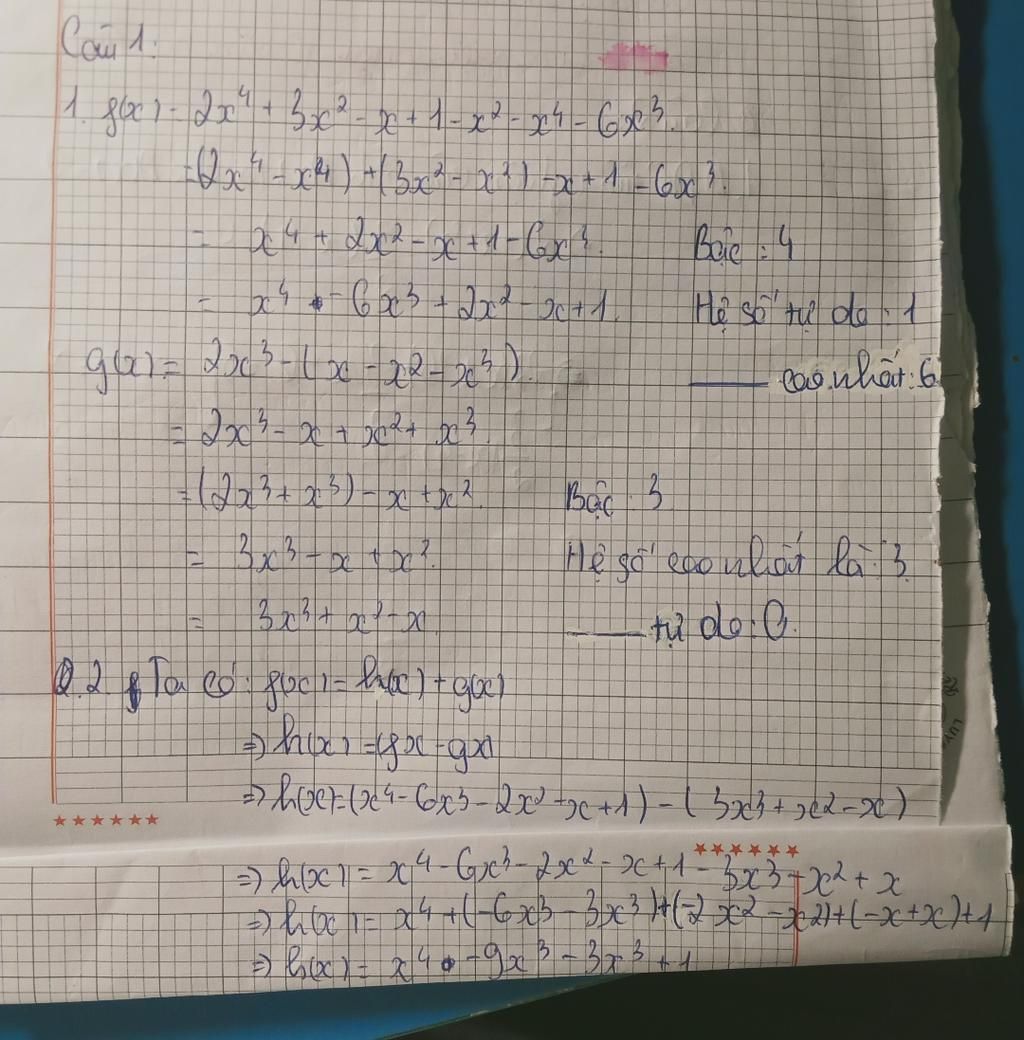 Câu 1:
1. f(x) = 2x⁴ + 3x² - x + 1 - x² - x⁴ - 6x³.
= (2x⁴ - x⁴) + (3x² - x²) - x + 1 - 6x³.
= x⁴ + 2x² - x + 1 - 6x³. Bậc : 4
= x⁴ - 6x³ + 2x² - x + 1. Hệ số tự do : 1
g(x) = 2x³ - (x - x² - x³). —— cao nhất : 6
= 2x³ - x + x² + x³.
= (2x³ + x³) - x + x². Bậc : 3
= 3x³ - x + x². Hệ số cao nhất là : 3.
= 3x³ + x² - x. —— tự do : 0.
2. Ta có : f(x) = h(x) + g(x)
=> h(x) = (fx - gx)
=> h(x) = (x⁴ - 6x³ - 2x² - x + 1) - (3x³ + x² - x)
=> h(x) = x⁴ - 6x³ - 2x² - x + 1 - 3x³ - x² + x
=> h(x) = x⁴ + (-6x³ - 3x³) + (-2x² - x²) + (-x + x) + 1
=> h(x) = x⁴ - 9x³ - 3x³ + 1